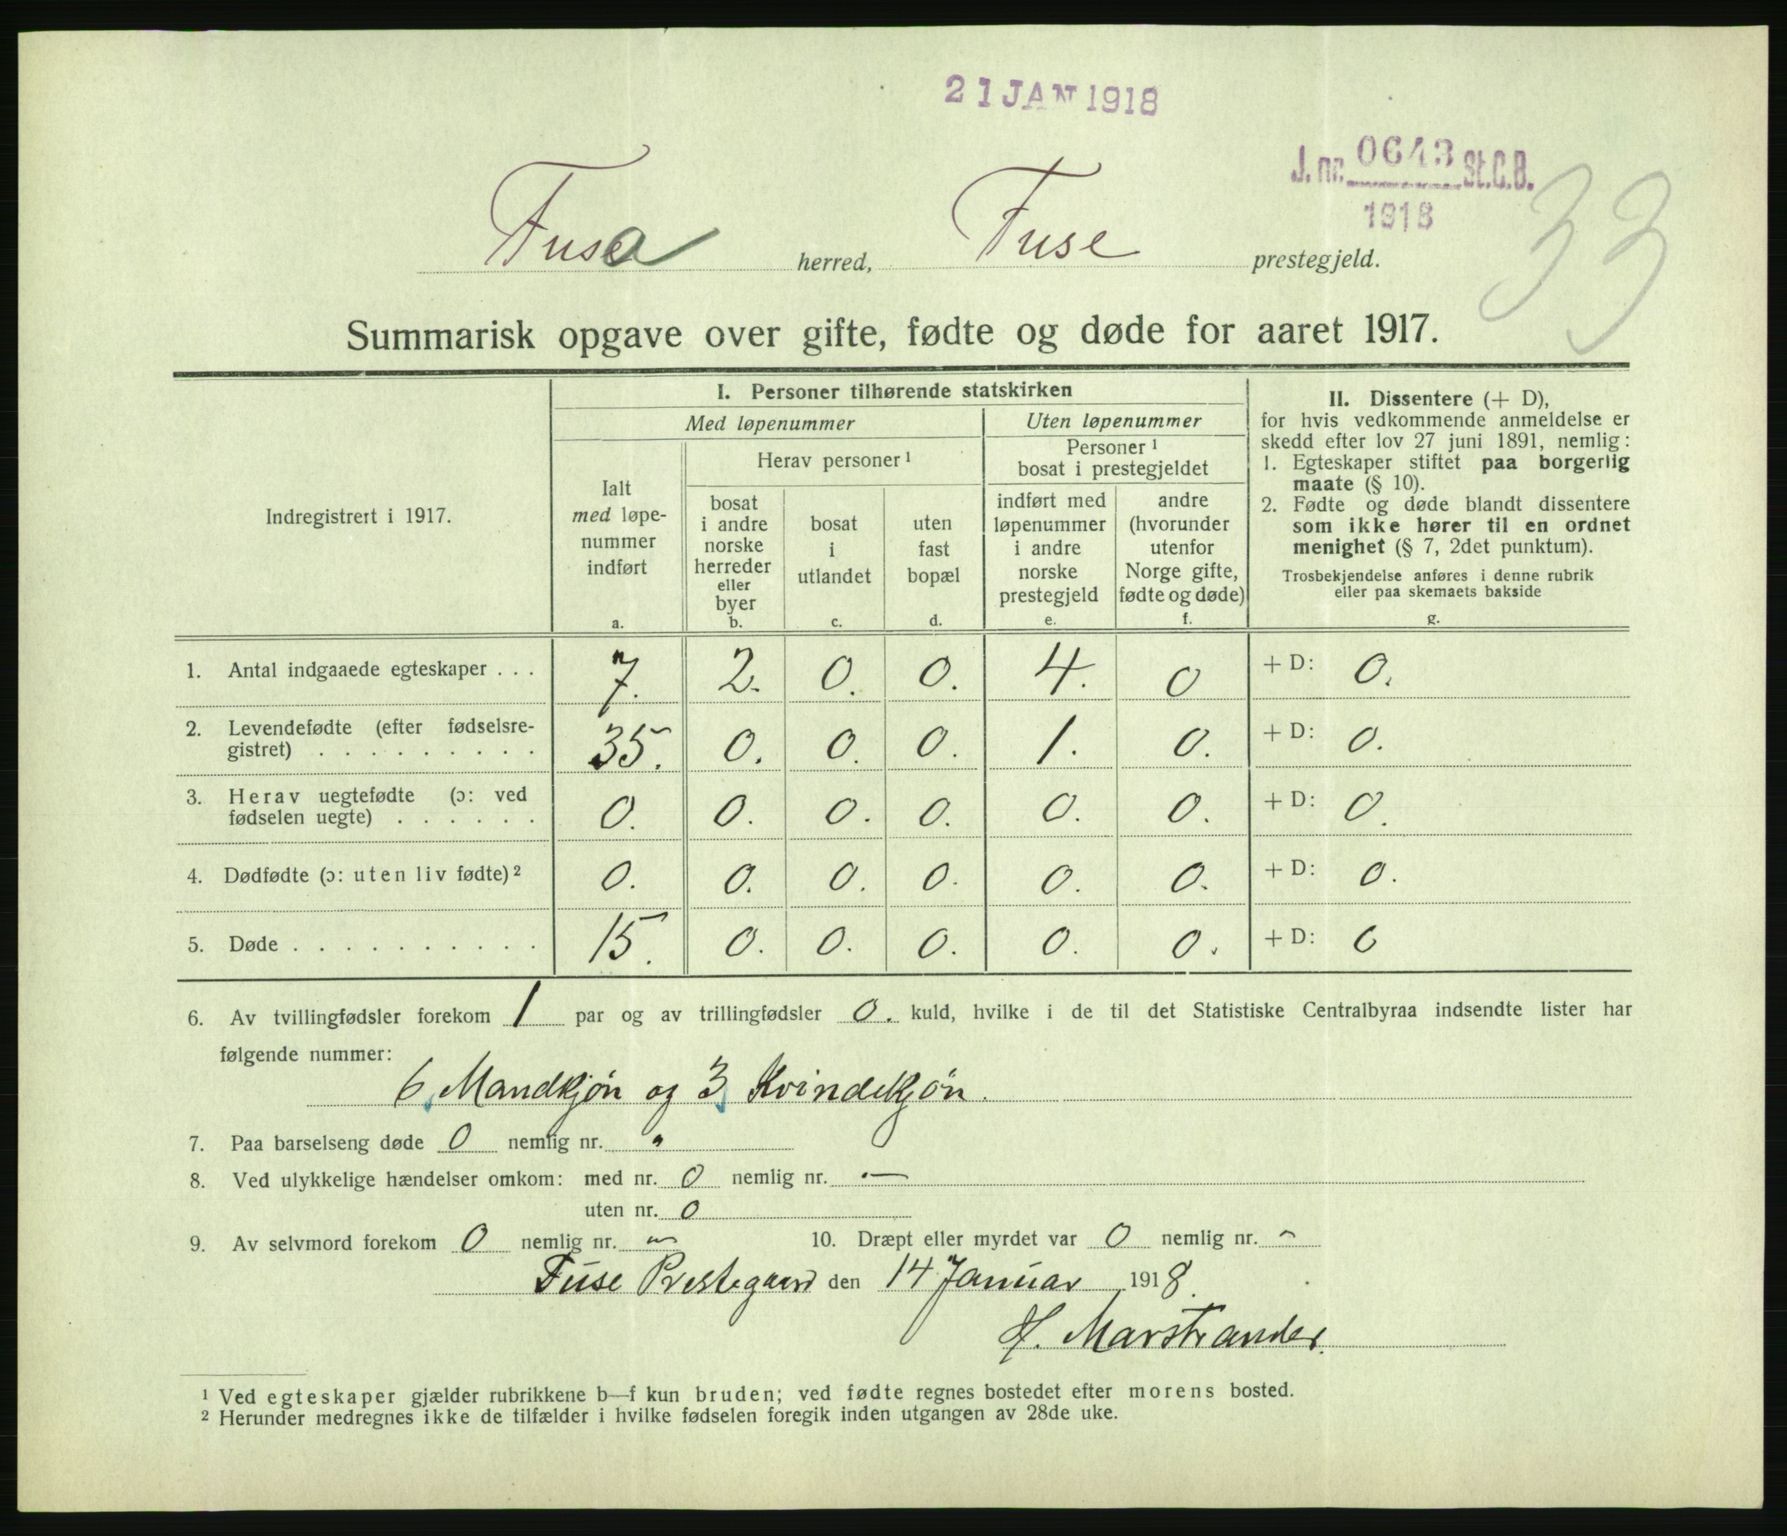 21 JAN 1918
J. nr. 0643 St.C.B.
1918
33
Fusa herred, Fuse prestegjeld.
Summarisk opgave over gifte, fødte og døde for aaret 1917.
Indregistrert i 1917.
I. Personer tilhørende statskirken
Med løpenummer
Uten løpenummer
Ialt
med løpe-
nummer
indført
a.
Herav personer ¹
bosat
i andre
norske
herreder
eller
byer
b.
bosat
i
utlandet
c.
uten
fast
bopæl
d.
Personer ¹
bosat i prestegjeldet
indført med
løpenummer
i andre
norske
prestegjeld
e.
andre
(hvorunder
utenfor
Norge gifte,
fødte og døde)
f.
II. Dissentere (+ D),
for hvis vedkommende anmeldelse er
skedd efter lov 27 juni 1891, nemlig:
1. Egteskaper stiftet paa borgerlig
maate (§ 10).
2. Fødte og døde blandt dissentere
som ikke hører til en ordnet
menighet (§ 7, 2det punktum).
Trosbekjendelse anføres i denne rubrik
eller paa skemaets bakside
g.
1. Antal indgaaede egteskaper . . . 7. 2. 0. 0. 4. 0 + D: 0.
2. Levendefødte (efter fødselsre-
gistret) . . . . . . . . . 35. 0. 0. 0. 1. 0. + D: 0.
3. Herav uegtefødte (ɔ: ved
fødselen uegte) . . . . . . 0. 0. 0. 0. 0. 0. + D: 0.
4. Dødfødte (ɔ: uten liv fødte) ² 0. 0. 0. 0. 0. 0. + D: 0.
5. Døde . . . . . . . . . . 15. 0. 0. 0. 0. 0. + D: 0
6. Av tvillingfødsler forekom 1 par og av trillingfødsler 0. kuld, hvilke i de til det Statistiske Centralbyraa indsendte lister har
følgende nummer:
6, Mandkjøn og 3, Kvindekjøn.
7. Paa barselseng døde 0 nemlig nr. "
8. Ved ulykkelige hændelser omkom: med nr. 0 nemlig nr. —
uten nr. 0
9. Av selvmord forekom 0 nemlig nr. — 10. Dræpt eller myrdet var 0 nemlig nr. -
Fuse Prestegaard den 14 Januar 1918.
H. Marstrander.
¹ Ved egteskaper gjælder rubrikkene b—f kun bruden; ved fødte regnes bostedet efter morens bosted.
² Herunder medregnes ikke de tilfælder i hvilke fødselen foregik inden utgangen av 28de uke.